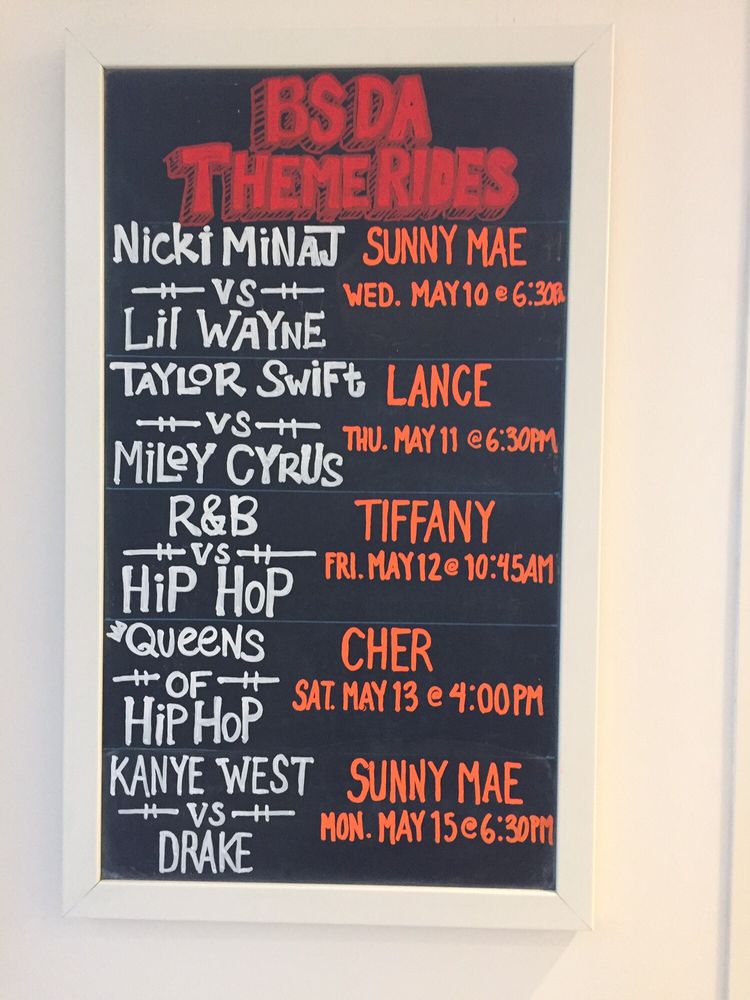 BSDA
THEME RIDES
Nicki MiNAJ
VS
Lil WAYNE
SUNNY MAE
WED. MAY 10 @ 6:30PM
TAYLOR SWiFt
VS
MiLeY CYRUS
LANCE
THU. MAY 11 @ 6:30PM
R&B
VS
HiP HoP
TIFFANY
FRI. MAY 12 @ 10:45AM
QUeeNS
OF
HiP HoP
CHER
SAT. MAY 13 @ 4:00PM
KANYE WEST
VS
DRAKE
SUNNY MAE
MON. MAY 15 @ 6:30PM